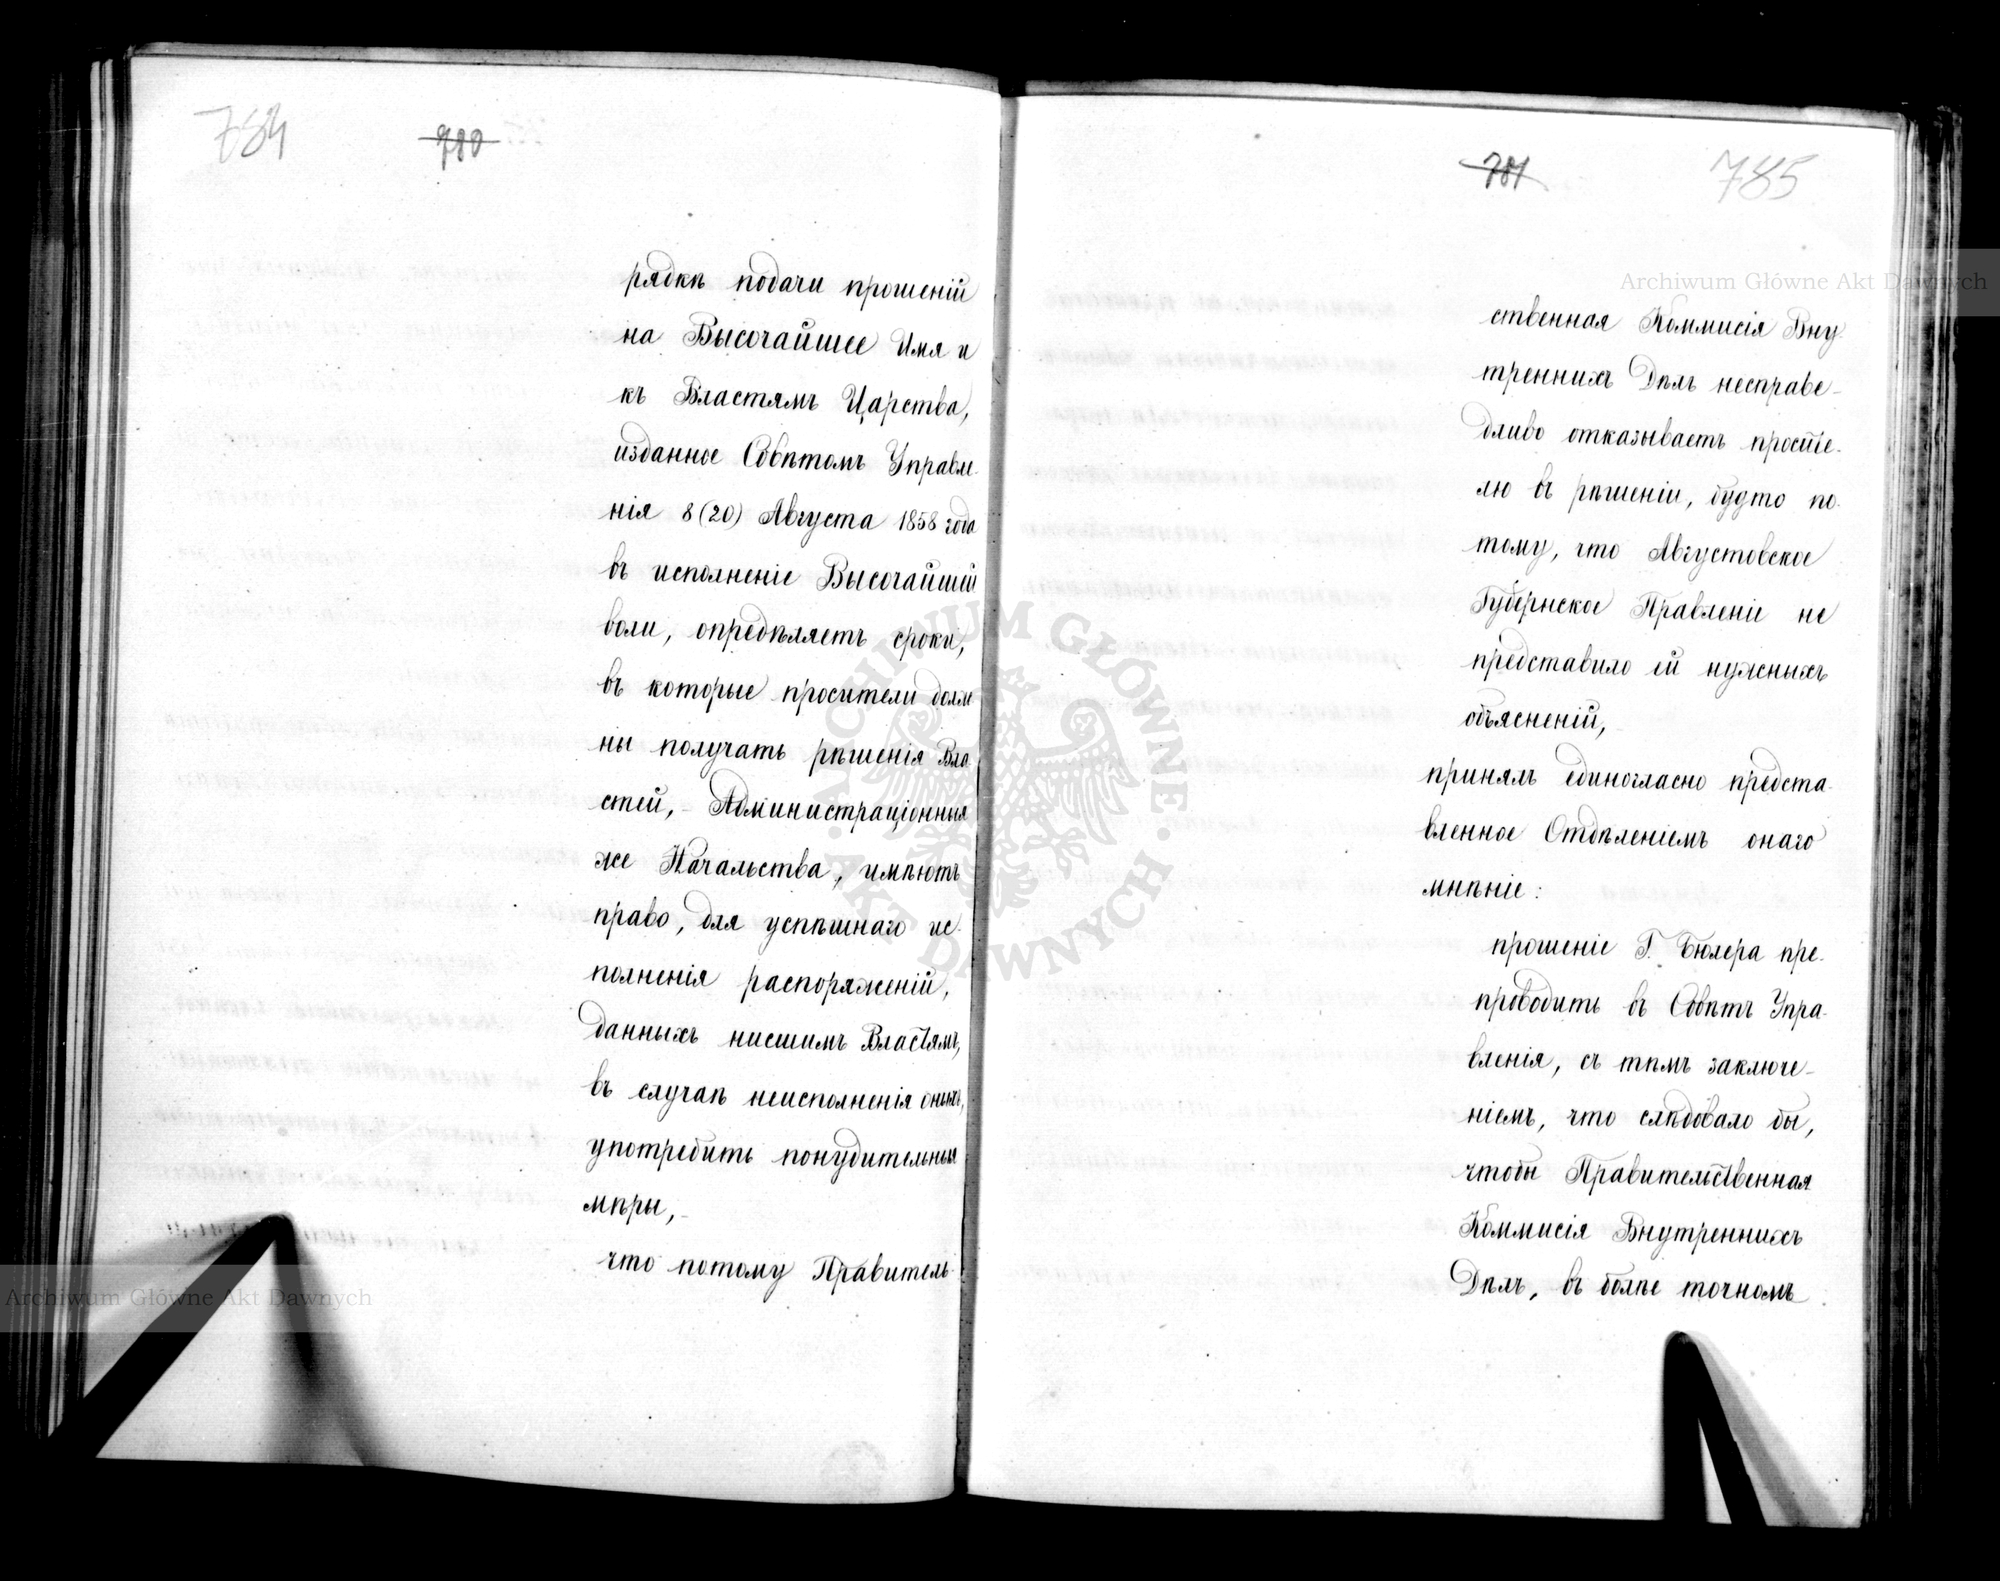 784
780
рядкѣ подачи прошеній
на Высочайшее Имя и
къ Властямъ Царства,
изданное Совѣтомъ Управле-
нія 8 (20) Августа 1858 года
въ исполненіе Высочайшей
воли, опредѣляетъ сроки,
въ которые просители долж
ны получать рѣшенія Вла
стей, - Администраціонныя
же Начальства, имѣютъ
право, для успѣшнаго ис-
полненія распоряженій,
данныхъ нисшимъ Властямъ,
въ случаѣ неисполненія оныхъ,
употребить понудительныя
мѣры, -
что потому Правитель-
781
785
ственная Коммисія Вну-
треннихъ Дѣлъ несправе-
дливо отказываетъ просите-
лю въ рѣшеніи, будто по-
тому, что Августовское
Губернское Правленіе не
представило ей нужныхъ
объясненій, -
принялъ единогласно предста-
вленное Отдѣленіемъ онаго
мнѣніе:
прошеніе Г. Бюлера пре-
проводить въ Совѣтъ Упра-
вленія, съ тѣмъ заключе-
ніемъ, что слѣдовало бы,
чтобы Правительственная
Коммисія Внутреннихъ
Дѣлъ, въ болѣе точномъ
Archiwum Główne Akt Dawnych
Archiwum Główne Akt Dawnych
ARCHIWUM GŁÓWNE AKT DAWNYCH